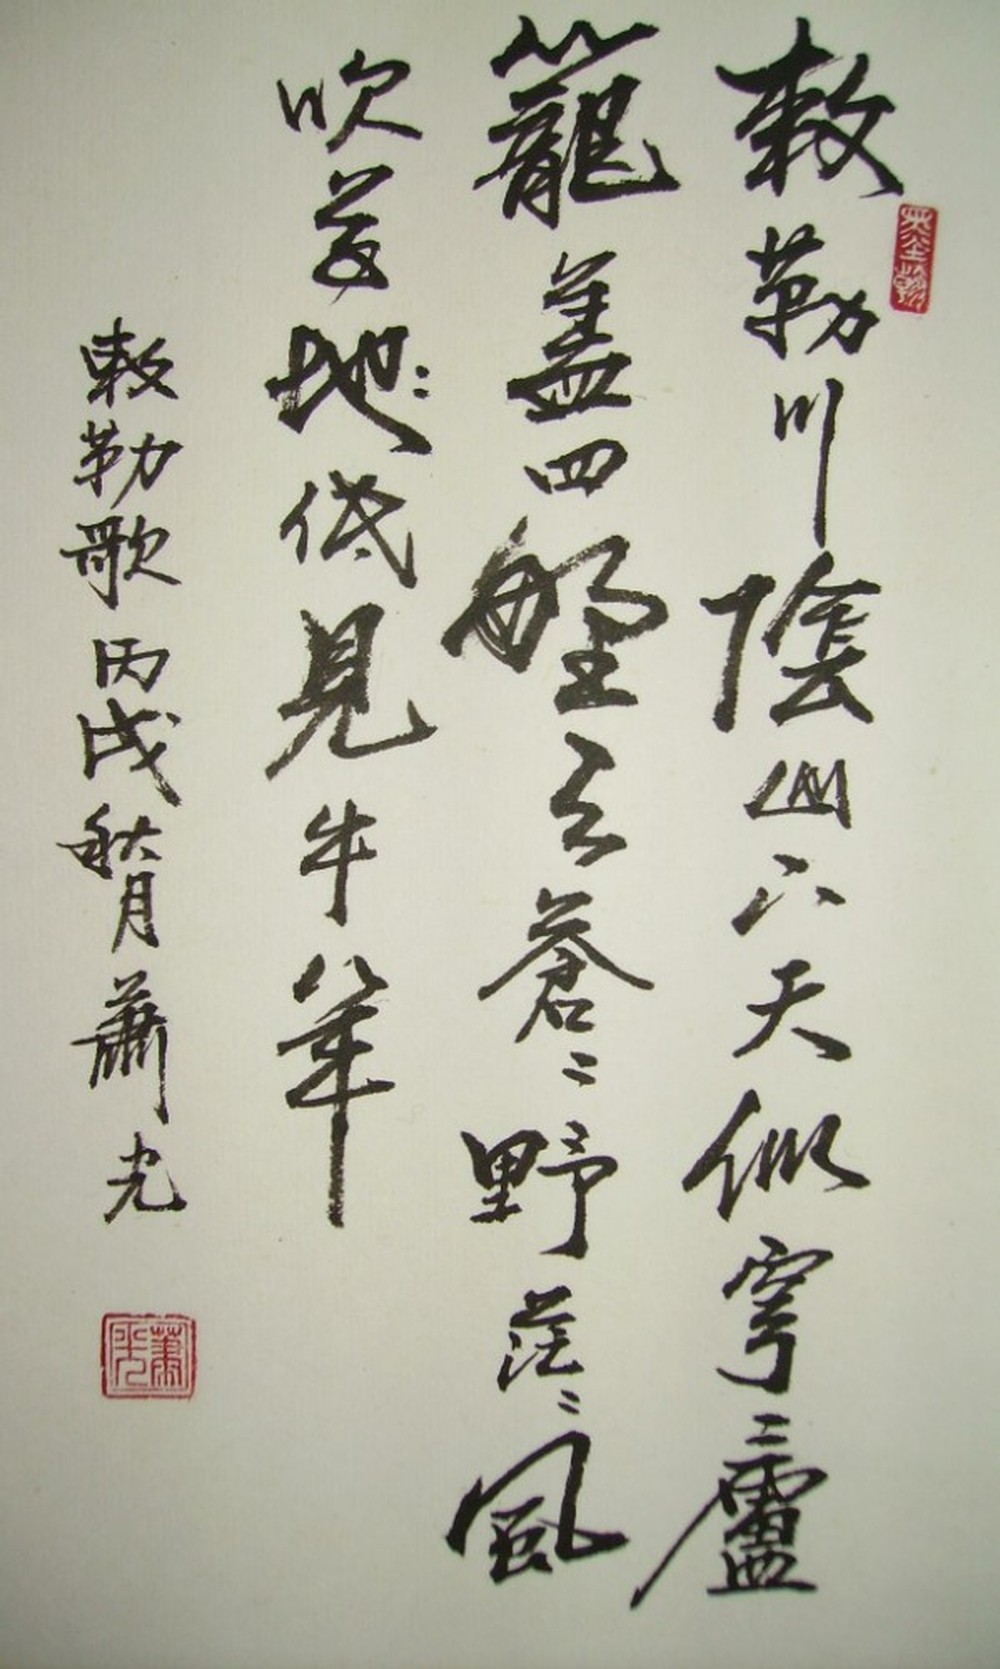 敕勒川陰山下天似穹廬
籠蓋四野天蒼〻野茫〻風
吹草地低見牛羊
敕勒歌丙戌秋月蕭光
蕭光